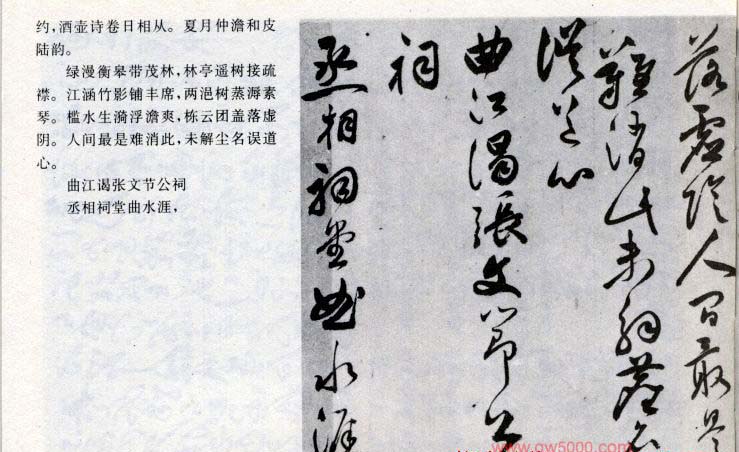 约,酒壶诗卷日相从。夏月仲澹和皮
陆韵。
绿漫衡皋带茂林,林亭遥树接疏
襟。江涵竹影铺丰席,两浥树蒸溽素
琴。槛水生漪浮澹爽,栋云团盖落虚
阴。人间最是难消此,未解尘名误道
心。
曲江谒张文节公祠
丞相祠堂曲水涯,
落虚阴人间最是
难消此未解尘名
误道心
曲江谒張文節公
祠
丞相祠堂曲水涯
www.gw5000.com